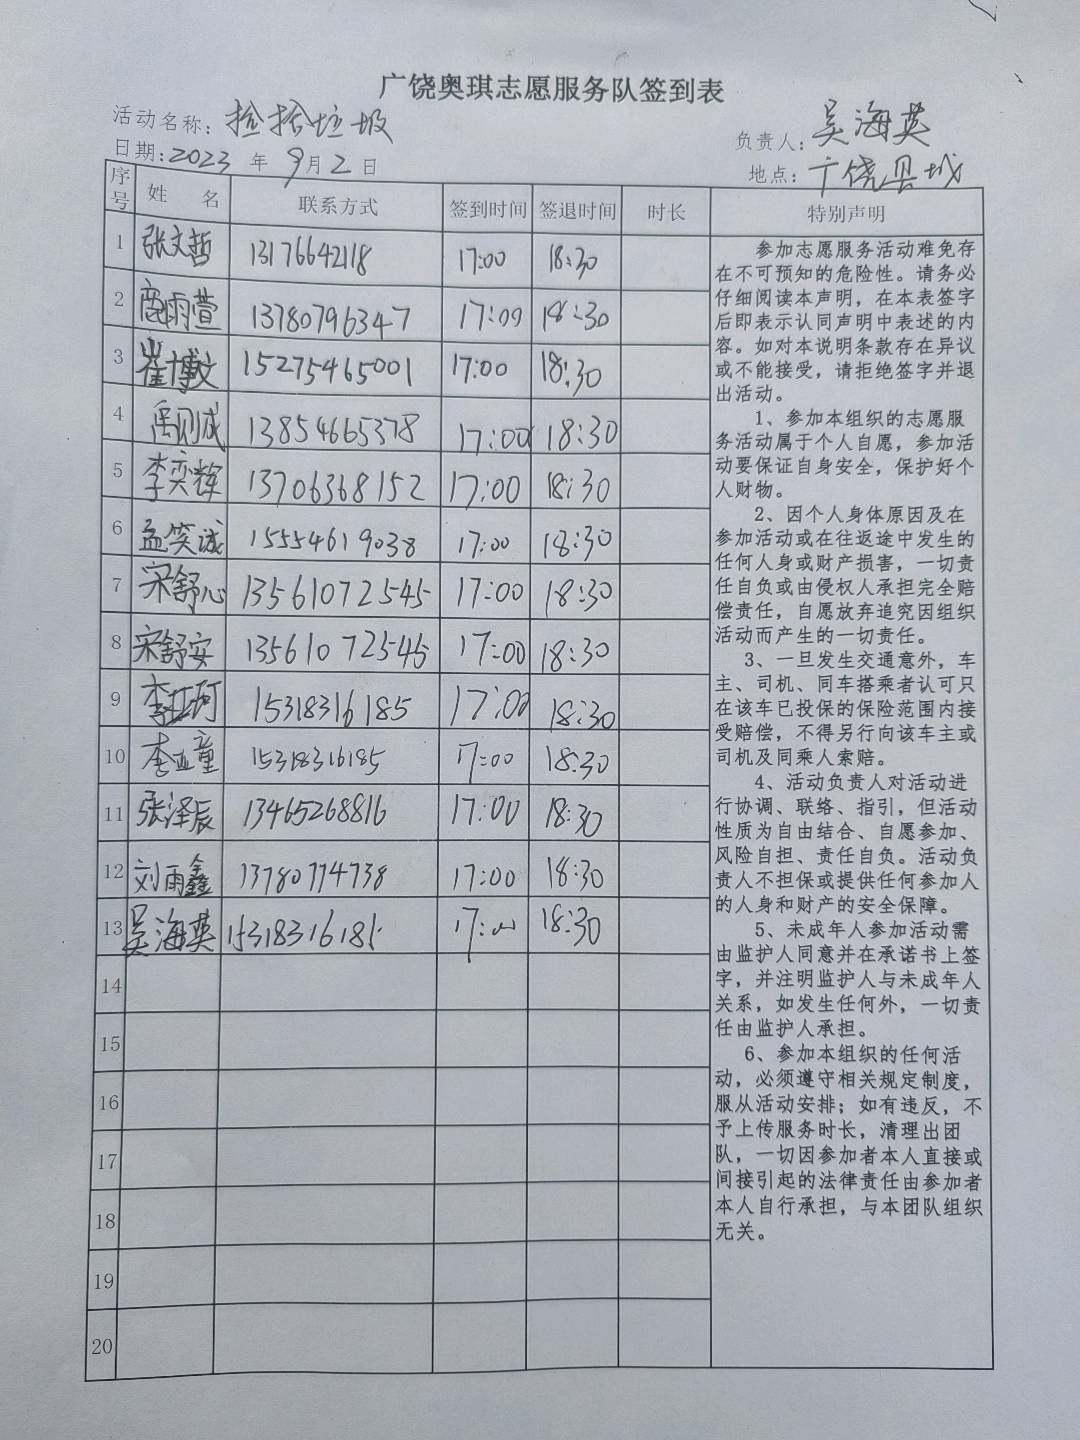 广饶奥琪志愿服务队签到表
活动名称：捡拾垃圾
负责人：吴海英
日期：2023 年 9月2日
地点：广饶县城
序号 姓 名 联系方式 签到时间 签退时间 时长 特别声明
1 张文哲 13176642118 17:00 18:30
2 雨萱 13780796347 17:00 18:30
3 崔博文 15275465001 17:00 18:30
4 禹则成 13854665378 17:00 18:30
5 李奕辉 13706368152 17:00 18:30
6 孟笑诚 15554619038 17:00 18:30
7 宋舒心 13561072545 17:00 18:30
8 宋舒安 13561072545 17:00 18:30
9 李亚珂 15318316185 17:00 18:30
10 李亚童 15318316185 17:00 18:30
11 张泽辰 13465268816 17:00 18:30
12 刘雨鑫 13780774738 17:00 18:30
13 吴海英 15318316185 17:00 18:30
14
15
16
17
18
19
20
参加志愿服务活动难免存
在不可预知的危险性。请务必
仔细阅读本声明，在本表签字
后即表示认同声明中表述的内
容。如对本说明条款存在异议
或不能接受，请拒绝签字并退
出活动。
1、参加本组织的志愿服
务活动属于个人自愿，参加活
动要保证自身安全，保护好个
人财物。
2、因个人身体原因及在
参加活动或在往返途中发生的
任何人身或财产损害，一切责
任自负或由侵权人承担完全赔
偿责任，自愿放弃追究因组织
活动而产生的一切责任。
3、一旦发生交通意外，车
主、司机、同车搭乘者认可只
在该车已投保的保险范围内接
受赔偿，不得另行向该车主或
司机及同乘人索赔。
4、活动负责人对活动进
行协调、联络、指引，但活动
性质为自由结合、自愿参加、
风险自担、责任自负。活动负
责人不担保或提供任何参加人
的人身和财产的安全保障。
5、未成年人参加活动需
由监护人同意并在承诺书上签
字，并注明监护人与未成年人
关系，如发生任何外，一切责
任由监护人承担。
6、参加本组织的任何活
动，必须遵守相关规定制度，
服从活动安排；如有违反，不
予上传服务时长，清理出团
队，一切因参加者本人直接或
间接引起的法律责任由参加者
本人自行承担，与本团队组织
无关。